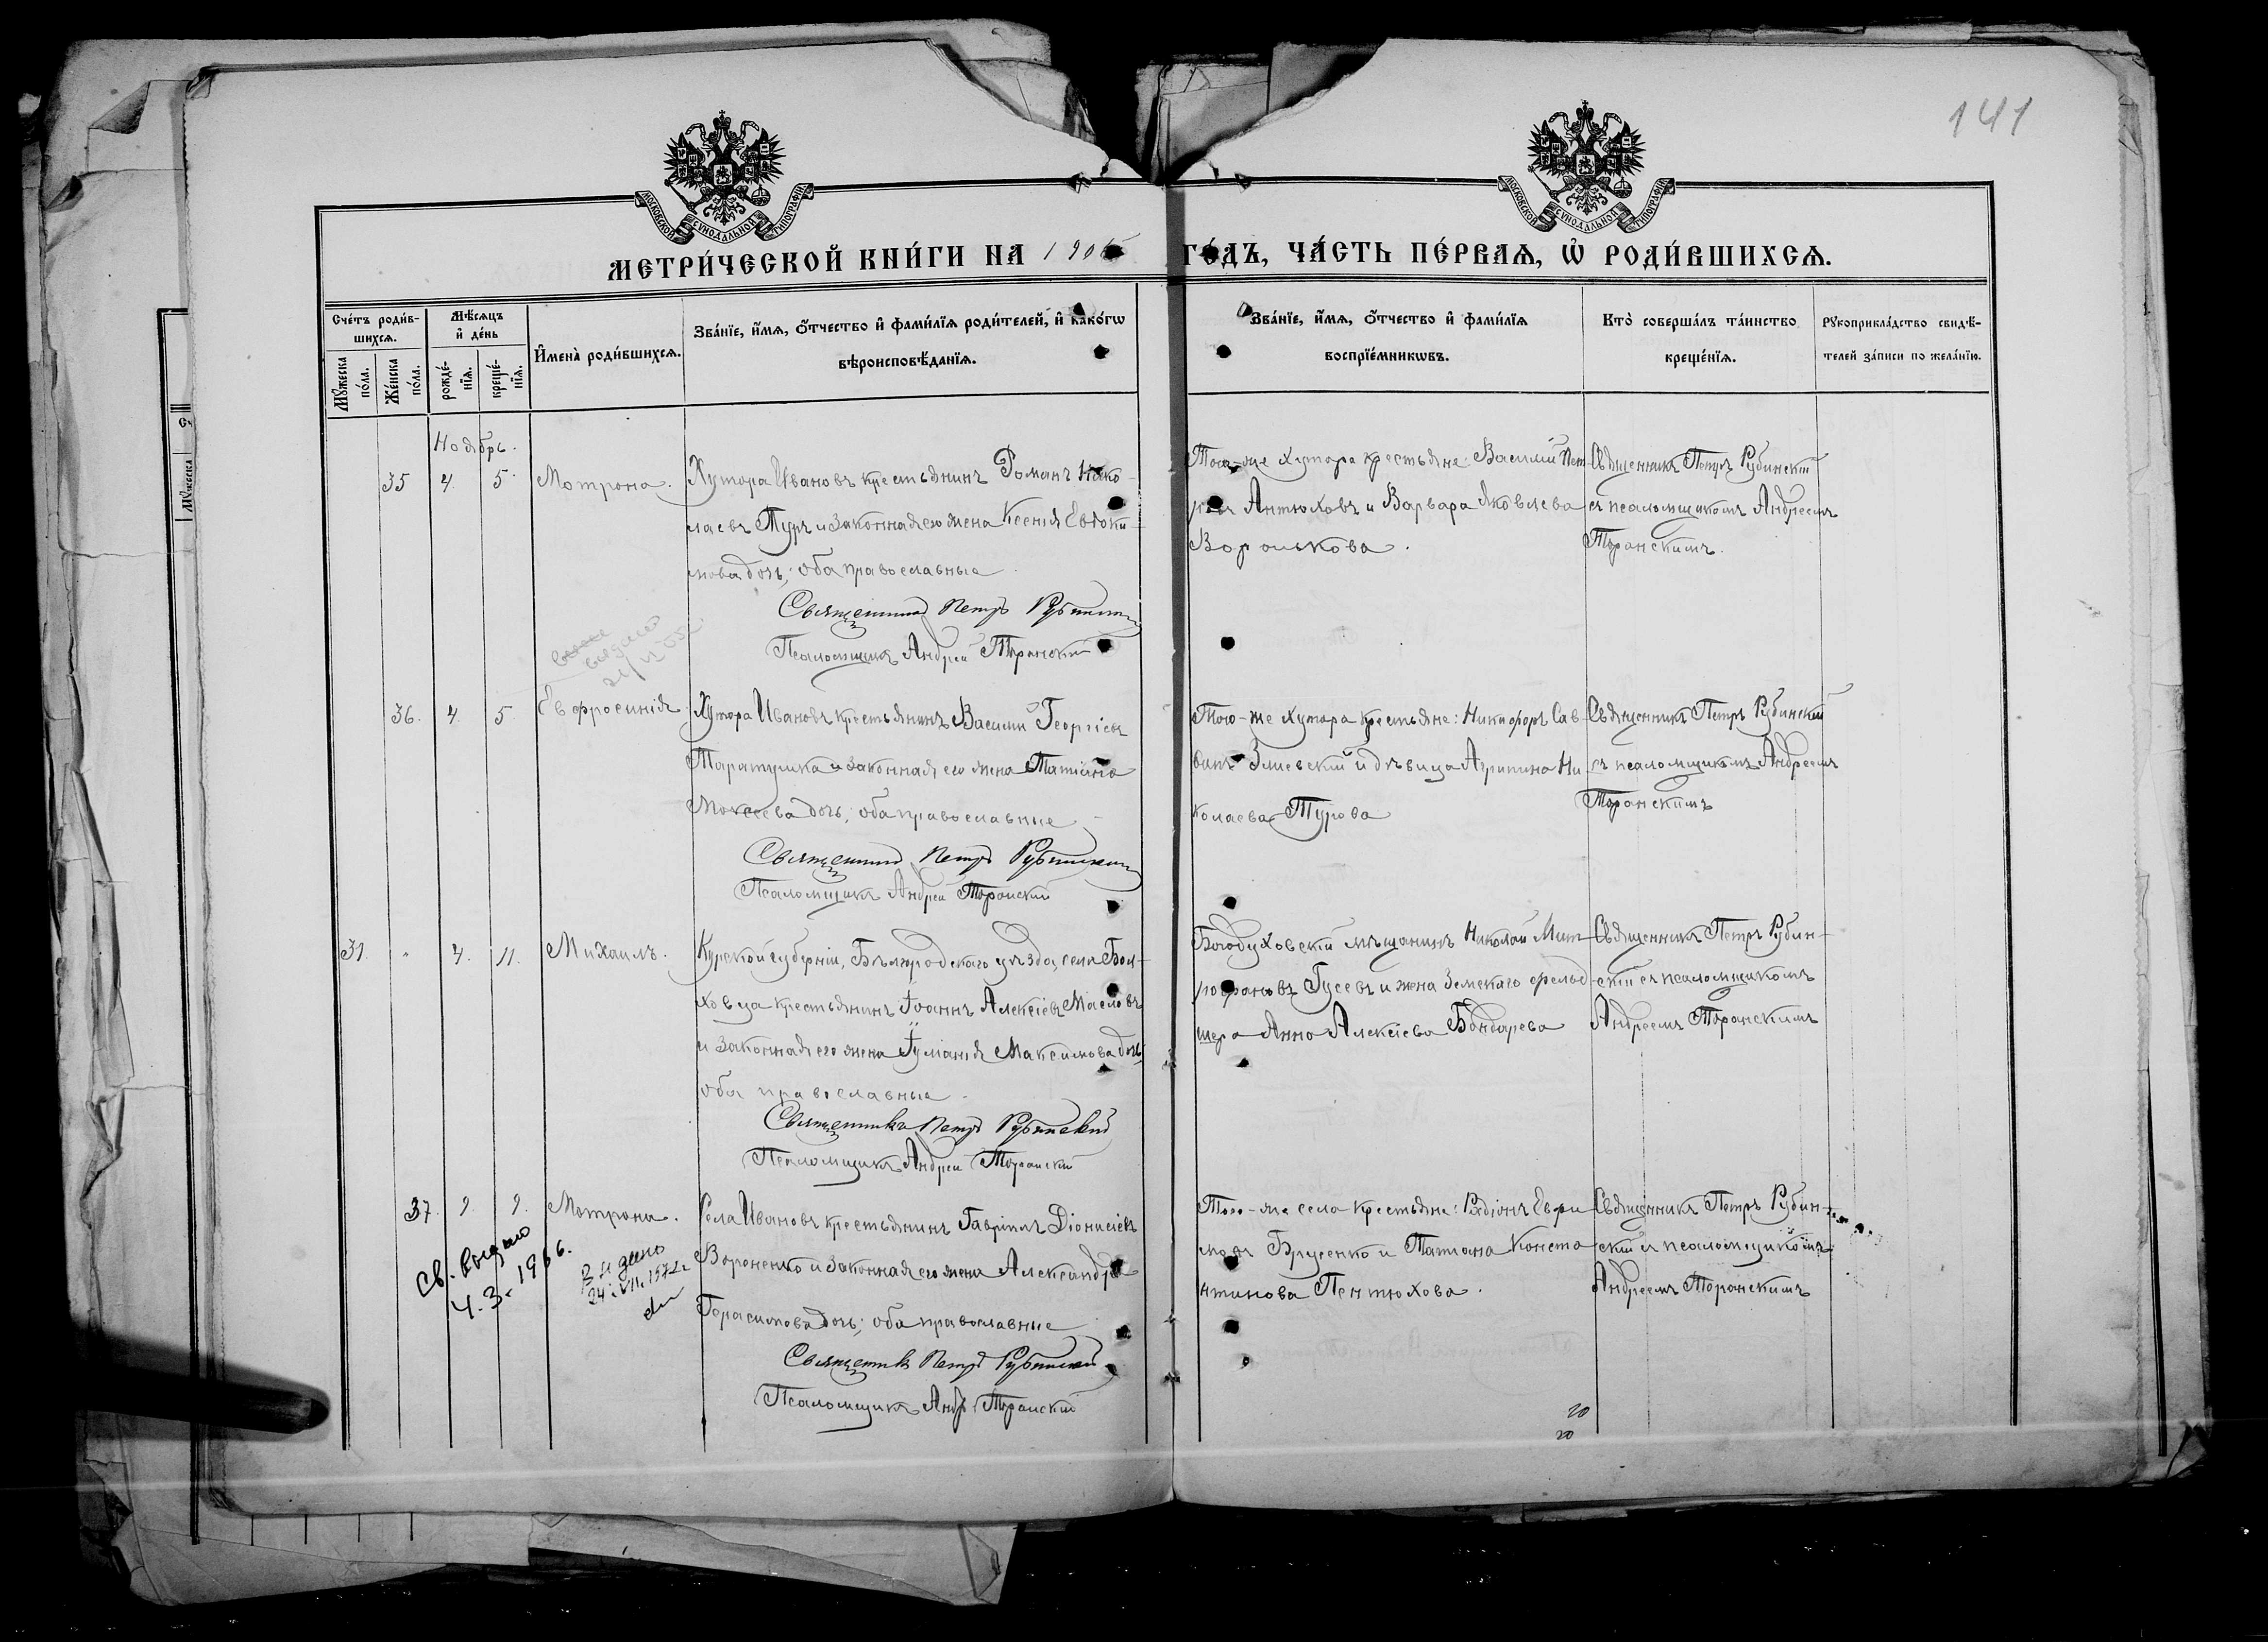 141
МОСКОВСКОЙ СУНОДАЛЬНОЙ ТИПОГРАФІИ
МОСКОВСКОЙ СУНОДАЛЬНОЙ ТИПОГРАФІИ
МЕТРИ́ЧЕСКОЙ КНИ́ГИ НА 190 ГО́ДЪ, ЧА́СТЬ ПЕ́РВАѦ, Ѡ РОДИ́ВШИХСѦ.
Сче́тъ роди́в-
шихсѧ.
Мꙋ́жеска по́ла.
Же́нска по́ла.
Мѣ́сѧцъ
и҆ де́нь
рожде́-нїѧ.
креще́-нїѧ.
И҆мена̀ роди́вшихсѧ.
Зва́нїе, и҆́мѧ, ѻ҆́тчество и҆ фами́лїѧ роди́телей, и҆ како́гѡ
вѣроисповѣ́данїѧ.
Зва́нїе, и҆́мѧ, ѻ҆́тчество и҆ фами́лїѧ
воспрїе́мникѡвъ.
Кто̀ соверша́лъ та́инство
креще́нїѧ.
Рꙋкоприкла́дство свидѣ́-
телей за́писи по жела́нїю.
Ноябрь.
35 4. 5. Мотрона.
Хутора Ивановъ крестьянинъ Романъ Нико-
лаевъ Туръ и законная его жена Ксенія Евдоки
мова дочь; оба православные
Священникъ Петръ Рубинскій
Псаломщикъ Андрей Торанский
Того-же хутора крестьяне: Василий Пет
ровъ Антюховъ и Варвара Яковлева
Воронькова.
Священникъ Петръ Рубинскій
съ псаломщикомъ Андреемъ
Торанскимъ.
выдано
36. 4. 5. Евфросинія
Хутора Ивановъ крестьянинъ Василий Георгіевъ
Таратушка и законная его жена Татіана
Мокеева дочь; оба православные
Священникъ Петръ Рубинский
Псаломщикъ Андрей Торанский
Того-же хутора крестьяне: Никифоръ Сав
винъ Змиевский и дѣвица Агрипина Ни
колаева Турова
Священникъ Петръ Рубинский
съ псаломщикомъ Андреемъ
Торанскимъ
31. " 4. 11. Михаилъ.
Курской губерніи, Бѣлгородскаго уѣзда, села Бол-
ховца крестьянинъ Іоаннъ Алексіевъ Масловъ
и законная его жена Іуліанія Максимова дочь
оба православные.
Священникъ Петръ Рубинский
Псаломщикъ Андрей Торанский
Богодуховскій мѣщанинъ Николай Мит
рофановъ Гусевъ и жена земскаго фельд
шера Анна Алексіева Бондарева
Священникъ Петръ Рубин-
скій съ псаломщикомъ
Андреемъ Торанскимъ
37. 9. 9. Мотрона.
Св. выдано
4.3.-1966.
Выдано
Села Ивановъ крестьянинъ Гавріилъ Діонисіевъ
Вороненко и законная его жена Александра
Герасимова дочь; оба православные
Священникъ Петръ Рубинский
Псаломщикъ Андр. Торанский
Того-же села крестьяне: Родіонъ Евфи
мовъ Брусенко и Татіана Конста
нтинова Пентюхова.
Священникъ Петръ Рубин-
ский съ псаломщикомъ
Андреемъ Торанскимъ
20
20